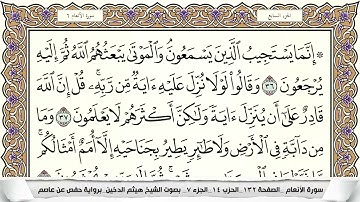 الجزء السابع
سورة الأنعام ٦
إِنَّمَا يَسْتَجِيبُ الَّذِينَ يَسْمَعُونَ وَالْمَوْتَى يَبْعَثُهُمُ اللَّهُ ثُمَّ إِلَيْهِ
يُرْجَعُونَ ٣٦ وَقَالُوا لَوْلَا نُزِّلَ عَلَيْهِ ءَايَةٌ مِّن رَّبِّهِ قُلْ إِنَّ اللَّهَ
قَادِرٌ عَلَى أَن يُنَزِّلَ ءَايَةً وَلَكِنَّ أَكْثَرَهُمْ لَا يَعْلَمُونَ ٣٧ وَمَا
مِن دَابَّةٍ فِي الْأَرْضِ وَلَا طَائِرٍ يَطِيرُ بِجَنَاحَيْهِ إِلَّا أُمَمٌ أَمْثَالُكُم
سورة الأنعام _الصفحة ١٣٢_ الحزب ١٤_ الجزء ٧_ بصوت الشيخ هيثم الدخين_ برواية حفص عن عاصم